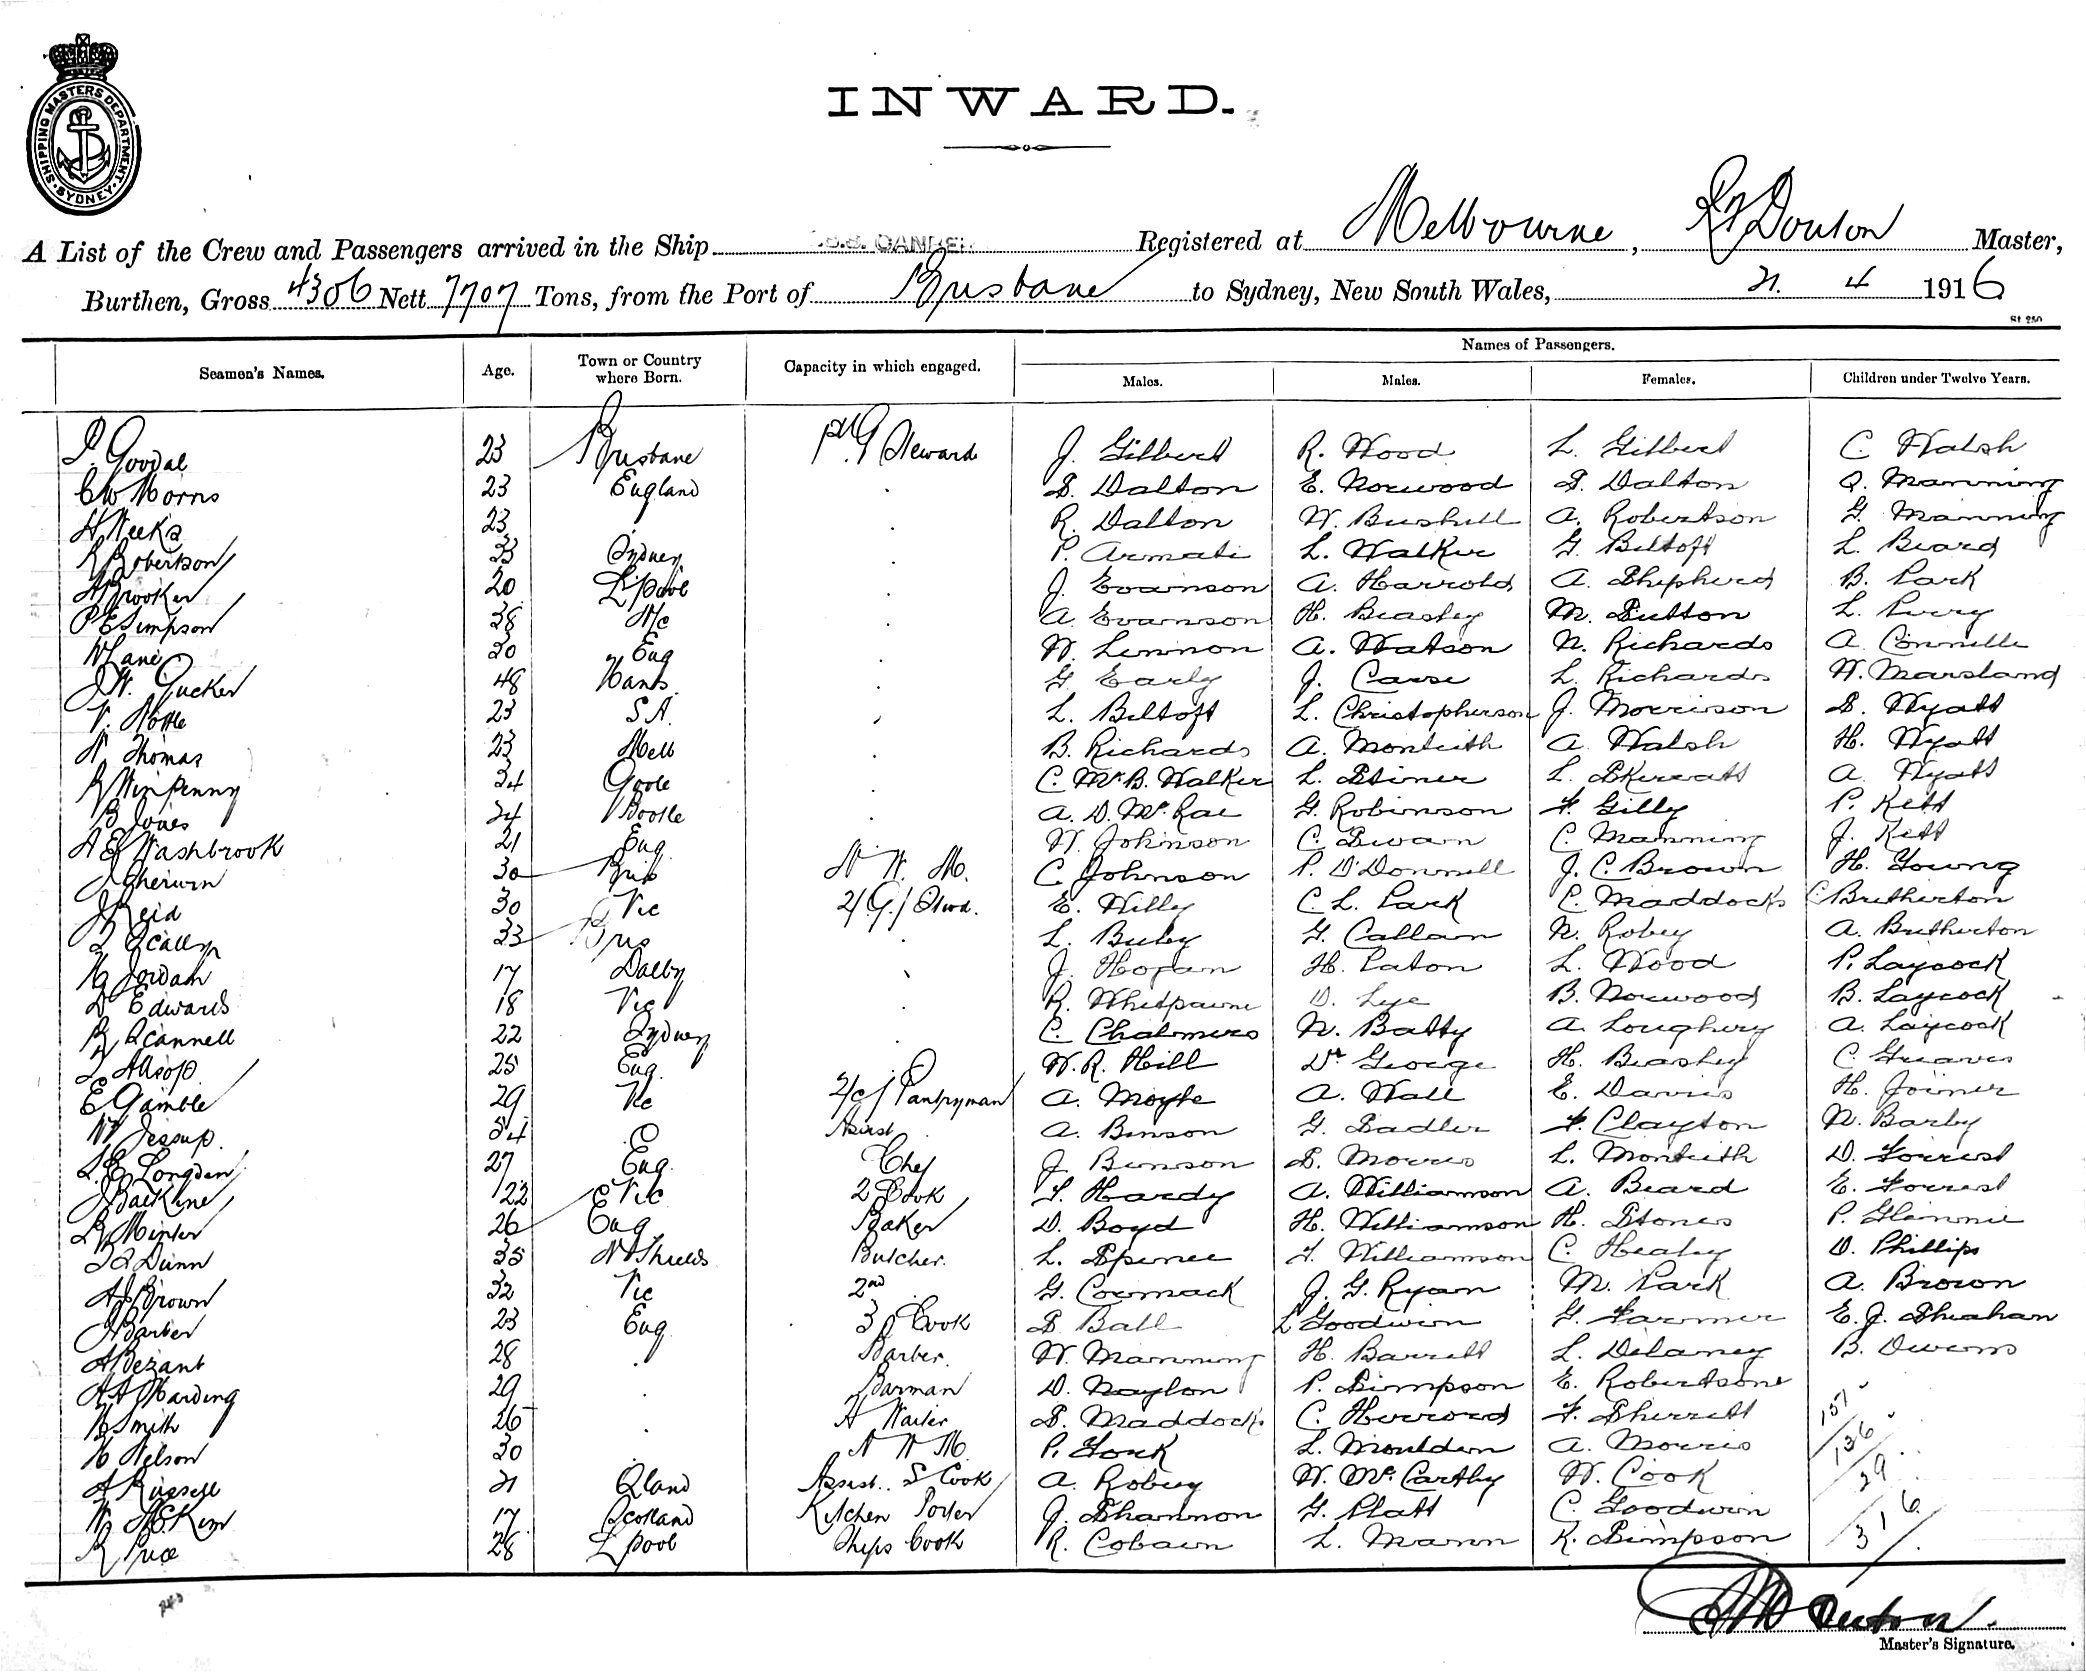 SHIPPING MASTERS DEPARTMENT SYDNEY
INWARD.
A List of the Crew and Passengers arrived in the Ship Registered at Melbourne, Master,
Burthen, Gross 4306 Nett 7707 Tons, from the Port of Brisbane to Sydney, New South Wales, 21. 4 1916
St 250
Names of Passengers.
Seamen's Names. Age. Town or Country where Born. Capacity in which engaged. Males. Males. Females. Children under Twelve Years.
P. Goodal 23 Brisbane Steward J. Gilbert R. Wood L. Gilbert C. Walsh
C W Morris 23 England S. Dalton E. Norwood S. Dalton Q. Manning
H Weeks 23 R. Dalton W. Bushell A. Robertson G. Manning
R Robertson 23 Sydney P. Armati L. Walker G. Beltoft L. Beard
A Brooker 20 L'pool J. Evanson A. Harrold A. Shepherd B. Park
P E Simpson 38 A. Evanson H. Beasley M. Sutton L. Perry
W Lane 20 Eng W. Lennon A. Watson N. Richards A. Connelle
J W. Tucker 48 Hants G. Early J. Carse L. Richards W. Marsland
V. Nottle 23 S.A. L. Beltoft L. Christopherson J. Morrison S. Wyatt
W Thomas 23 Melb B. Richards A. Monteith A. Walsh H. Wyatt
R Winpenny 24 Goole C. McB. Walker L. Stiner L. Skerratt A. Wyatt
B Jones 24 Bootle A. D. McRae G. Robinson F. Gilly P. Kett
A E Washbrook 21 Eng W. Johnson C. Swan C. Manning J. Kett
J Sherwin 30 Bris N. W. M. C. Johnson P. O'Donnell J. C. Brown H. Young
J Reid 30 Vic 2/G/ Stwd. E. Willy C. L. Park C. Maddocks C. Brutherton
J Scally 33 Bris L. Buley G. Callan N. Robey A. Brutherton
H Jordan 17 Dalby J. Hogan H. Paton L. Wood P. Laycock
D Edwards 18 Vic R. Whitpaine D. Lye B. Norwood B. Laycock
R Scannell 22 Sydney C. Chalmers N. Batty A. Loughery A. Laycock
J Allsop 25 Eng. W. R. Hill Dr George H. Beasley C. Greaves
E Gamble 29 Vic 2/c/ Pantryman A. Moyle A. Hall E. Davies H. Joiner
W Jessup. 54 Assist A. Benson G. Sadler F. Clayton N. Barby
L E Longden 27 Eng. Chef J. Benson S. Morris L. Monteith D. Forrest
J Balkine 22 Vic 2 Cook F. Hardy A. Williamson A. Beard E. Forrest
R Minter 26 Eng Baker D. Boyd H. Williamson H. Stones P. Glennie
Dunn 35 N Shields Butcher. L. Spence F. Williamson C. Healey D. Phillips
A J Brown 32 Vic 2nd G. Cormack J. G. Ryan M. Park A. Brown
J Barber 23 Eng 3 Cook S Ball L Goodwin G. Farmer E. J. Sheahan
A Bezant 28 Barber. W. Manning H. Barrett L. Delaney B. Owens
A A Harding 29 Barman D. Naylon P. Simpson E. Robertson
H Smith 26 Waiter S. Maddocks C. Herrord F. Sherrett 157
H Nelson 30 N W M. P. York L. Mouldern A. Morris 136
A Russell 21 Qland Assist. S Cook A. Robey W. McCarthy W. Cook 29
W McKim 17 Scotland Kitchen Porter J. Shannon G. Platt C. Goodwin 316
R Price 28 L'pool Ships Cook R. Cobain L. Mann K. Simpson
Master's Signature.